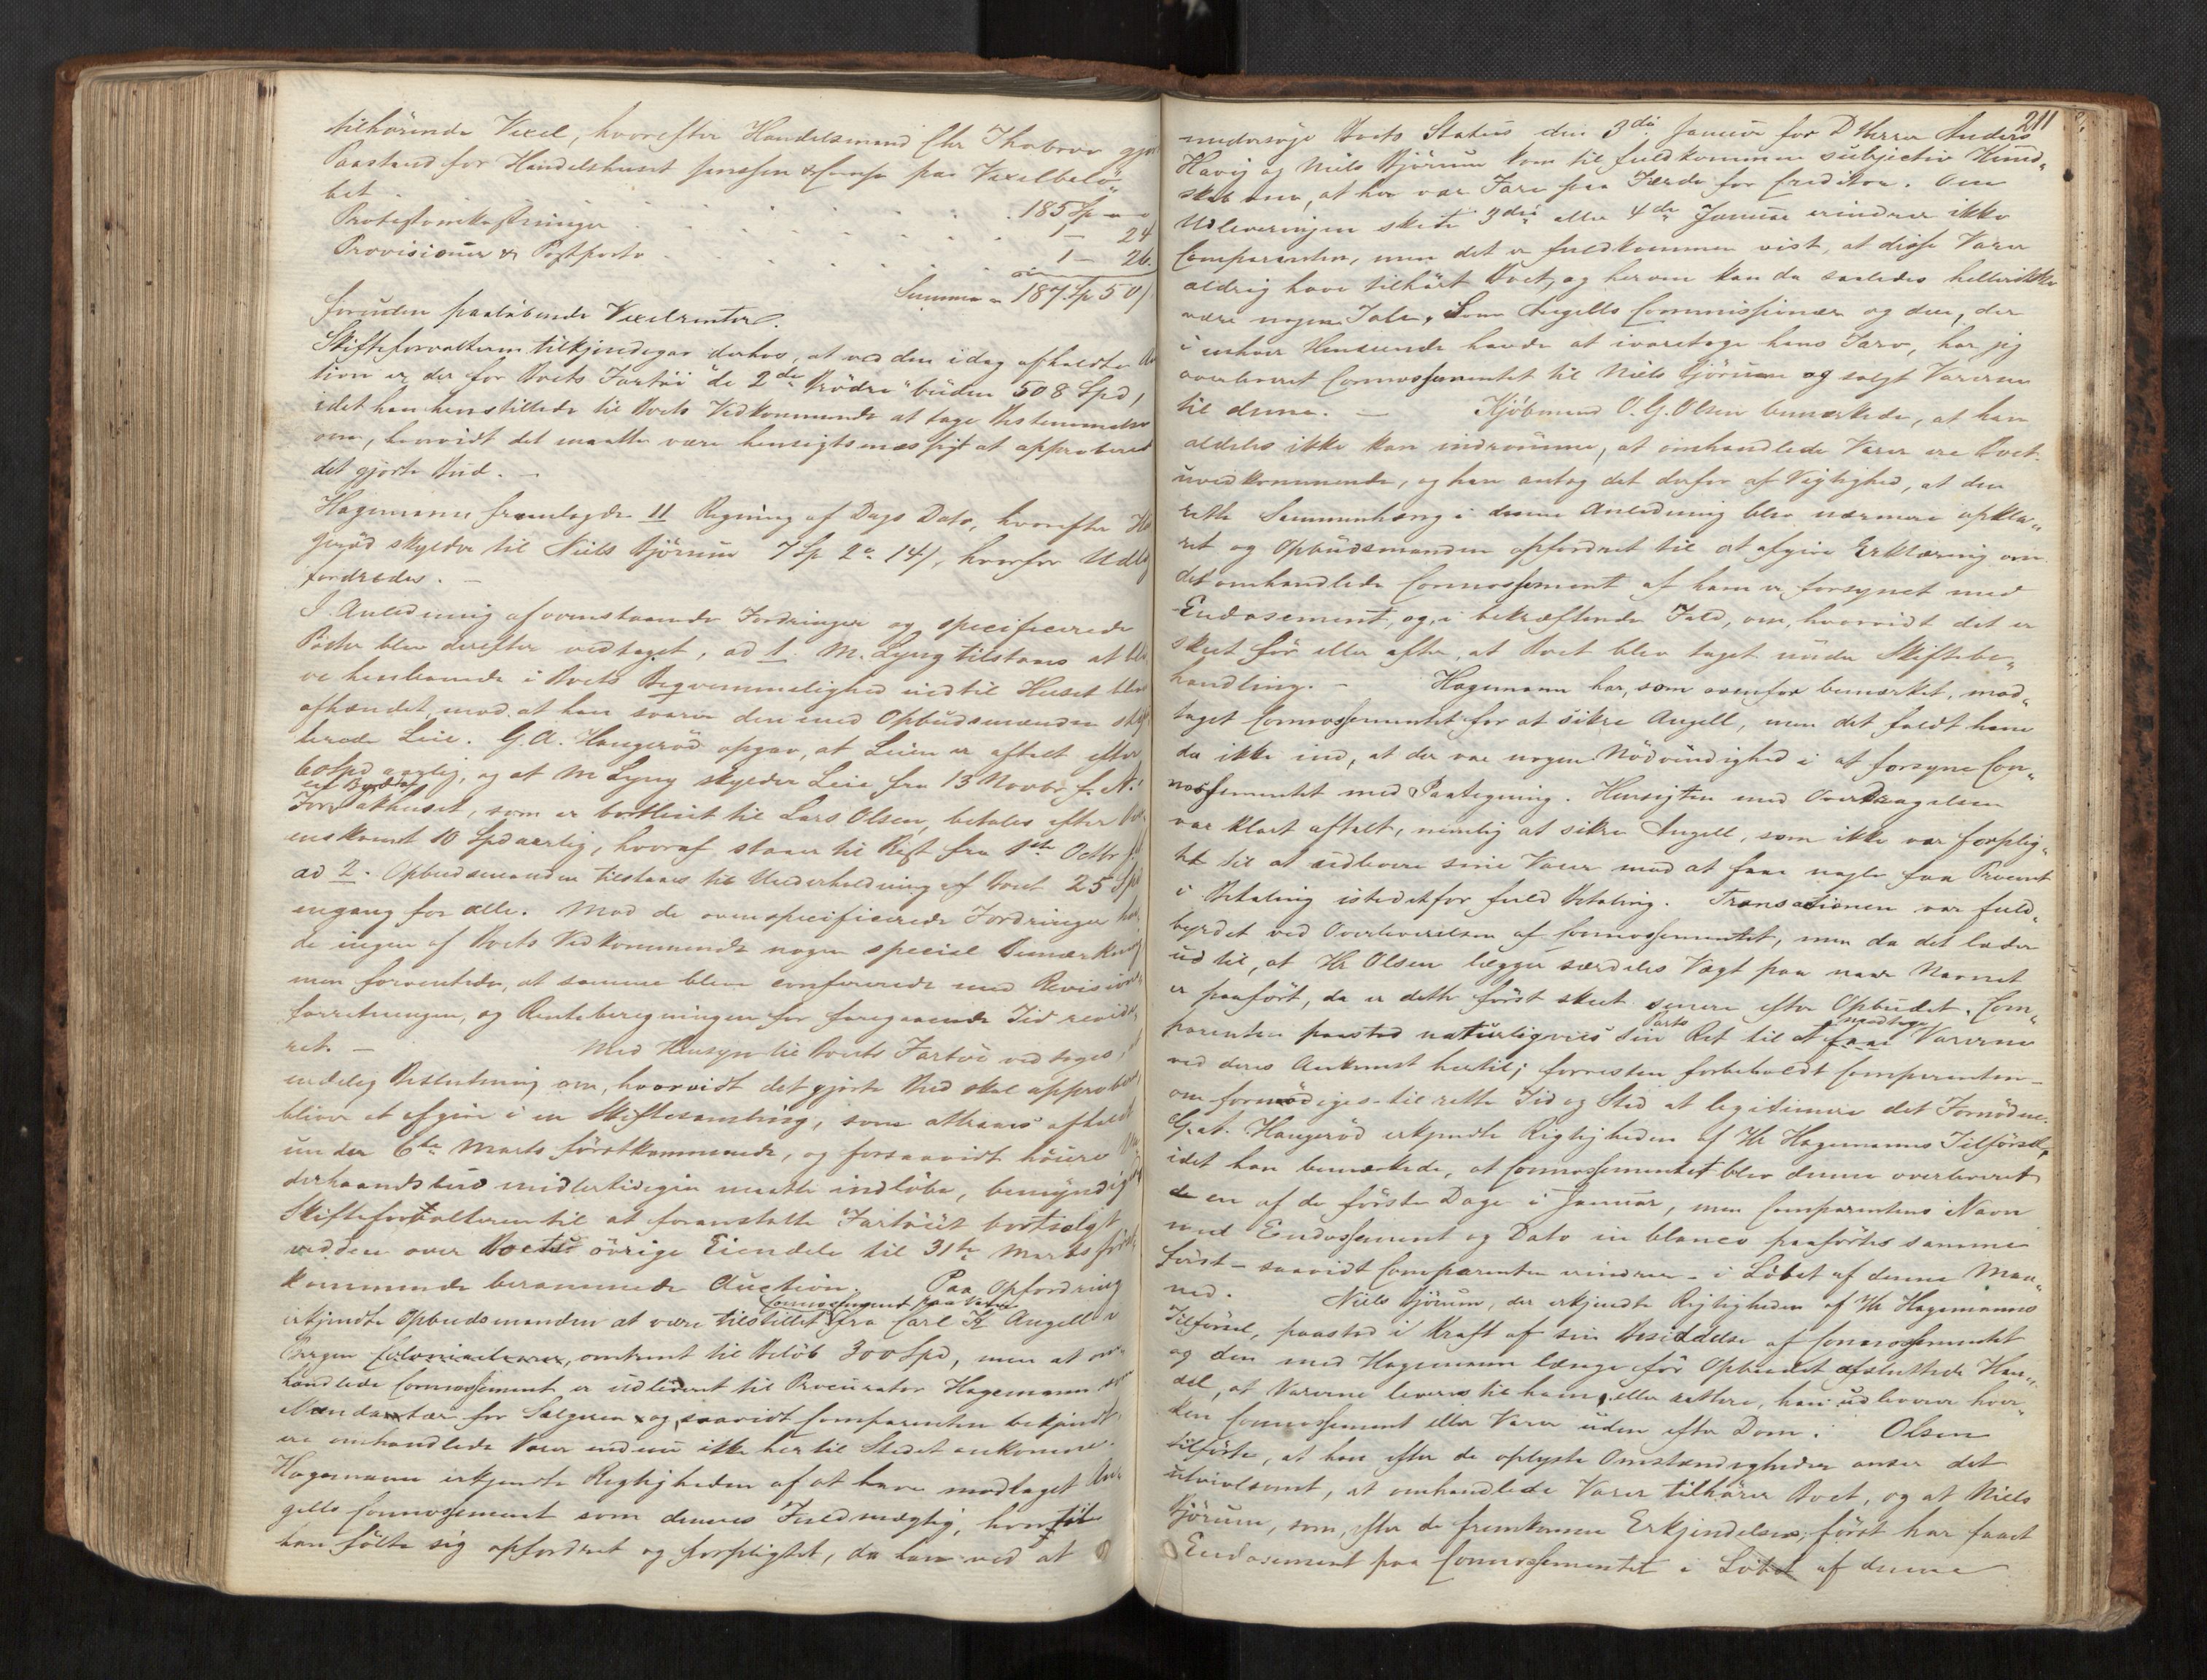 tilhørende Vexel, hvorefter Handelsmand Chr Thobroe gjør
Paastand for Handelshuset Jensen & Comp paa Vexelbelø„
bet . . . . . . . . 185 Sp „ „
Protestomkostninger . . . . . . 1 – 24
Provisioner & Postporto . . . . . . 1 – 26.
Summa = 187 Sp 50 /
foruden paaløbende Vexelrenter.
Skifteforvalteren tilkjendegav derhos, at ved den idag afholdte Au
tion er der for Boets Fartøi "de 2de Brødre" buden 508 Spd,
idet han henstillede til Boets Vedkommende at tage Bestemmelse
om, hvorvidt det maatte være hensigtsmæssigt at approberes
det gjorte Bud. –
Hagemann fremlagde 11 Regning af Dags Dato, hvorefter Hau
gerød skylder til Niels Bjørum 7 Sp 2 „ 14 /, hvorfor Udlæg
fordredes. –
I Anledning af ovenstaaende Fordringer og specificerede
Poster blev derefter vedtaget, ad 1. M. Lyng tilstaaes at bli
ve henboende i Boets Beqvemmelighed indtil Huset bliver
afhændet, mod at han svarer den med Opbudsmanden
berede Leie. G. A. Haugerød opgav, at Leien er aftalt efter
60 Spd aarlig, og at M Lyng skylder Leie fra 13 Novbr f. A.
For en Byde Pakhuset, som er bortleiet til Lars Olsen, betales efter Over
enskomst 10 Spd aarlig, hvoraf staaer til Rest fra 1ste Octbr f. A.
ad 2. Opbudsmanden tilstaaes til Underholdning af Boet 25 Spd
engang for alle. Mod de ovenspecificerede Fordringer hav
de ingen af Boets Vedkommende nogen special Bemærkning
men forventede, at samme blev confererede med Revisions„
forretningen, og Renteberegningen for foregaaende Tid revide„
ret. – Med Hensyn til Boets Fartøi vedtoges, at
endelig Beslutning om, hvorvidt det gjorte Bud skal approberes,
bliver at afgive i en Skiftesamling, som attraaes afholdt
under 6te Marts førstkommende, og forsaavidt høiere Un
derhaandsbud midlertidigen maatte indløbe, bemyndiges
Skifteforvalteren til at foranstalte Fartøiet bortsolgt
ved den over Boets øvrige Eiendele til 31te Marts først
kommende berammede Auction. Paa Opfordring
erkjendte Opbudsmanden at være tilstillet Connossement paa Varer fra Carl F. Angell i
Bergen Colonialvarer, omtrent til Beløb 300 Spd, men at om„
handlede Connossement er udleveret til Procurator Hagemann som
Mandatar for Sælgeren og, saavidt Comparenten bekjendt,
ere omhandlede Varer endnu ikke her til Stedet ankomne.
Hagemann erkjendte Rigtigheden af at have modtaget An
gells Connossement som dennes Fuldmægtig, hvortil
han følte sig opfordret og forpligtet, da han ved at
211
undersøge Boets Status den 3die Januar for DHerrer Anders
Havig og Niels Bjørum kom til fuldkommen subjectiv Kund„
skab om, at her var Fare paa Færde for Creditor. Om
Udleveringen skete 3die eller 4de Januar erindrer ikke
Comparenten, men det er fuldkommen vist, at disse Varer
aldrig have tilhørt Boet, og herom kan da saaledes heller ikke
være nogen Tale. Som Angells Commissionær og den, der
i enhver Henseende havde at ivaretage hans Tarv, har jeg
overleveret Connossementet til Niels Bjørum og solgt Varerne
til denne. – Kjøbmand O. G. Olsen bemærkede, at han
aldeles ikke kan indrømme, at omhandlede Varer ere Boet
uvedkommende, og han antog det derfor af Vigtighed, at den
rette Sammenhæng i denne Anledning blev nærmere opkla„
ret og Opbudsmanden opfordret til at afgive Erklæring om
det omhandlede Connossement af ham er forsynet med
Endosement, og, i bekræftende Fald, om, hvorvidt det er
skeet før eller efter, at Boet blev taget under Skiftebe„
handling. – Hagemann har, som ovenfor bemærket, mod„
taget Connossementet for at sikre Angell, men det faldt ham
da ikke ind, at der var nogen Nødvendighed i at forsyne Con„
nossementet med Paategning. Hensigten med Overdragelsen
var klart aftalt, nemlig at sikre Angell, som ikke var forplig„
tet til at udlevere sine Varer mod at faae nogle faa Procent
i Betaling istedetfor fuld Betaling. Transactionen var fuld„
byrdet ved Overleverelsen af Connossementet, men da det lader
ud til, at Hr Olsen lægger særdeles Vægt paa naar Navnet
er paaført, da er dette først skeet senere efter Opbudet. Com„
parenten paastod naturligviis sin Parts Ret til at faae modtage Varerne
ved deres Ankomst hertil; forresten forbeholdt Comparenten –
om fornødiges – til rette Tid og Sted at legitimere det Fornødne.
G. A. Haugerød erkjendte Rigtigheden af Hr Hagemanns Tilførsel,
idet han bemærkede, at Connossementet blev denne overleveret
de en af de første Dage i Januar, men Comparentens Navn
med Endossement og Dato in blanco paaførtes samme
først – saavidt Comparenten erindrer – i Løbet af denne Maa„
ned. Niels Bjørum, der erkjendte Rigtigheden af Hr Hagemanns
Tilførsel, paastod i Kraft af sin Besiddelse af Connossementet
og den med Hagemann længe før Opbudet afsluttede Han„
del, at Varerne leveres til ham, eller rettere, han udleverer hver„
ken Connossement eller Varer uden efter Dom. Olsen
tilførte, at han efter de oplyste Omstændigheder anser det
utvivlsomt, at omhandlede Varer tilhører Boet, og at Niels
Bjørum, som, efter de fremkomne Erkjendelser, først har faaet
Endosement paa Connossementet i Løbet af denne